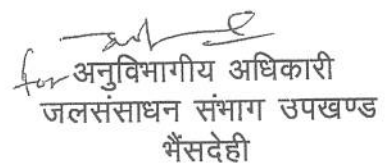 for अनुविभागीय अधिकारी
जलसंसाधन संभाग उपखण्ड
भैंसदेही